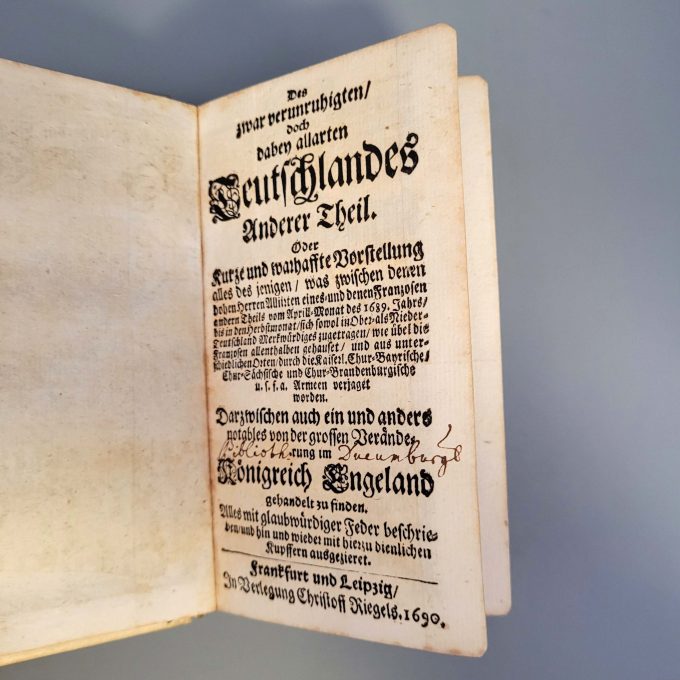 Des
zwar verunruhigten/
doch
dabey allarten
Teutschlandes
Anderer Theil.
Oder
Kurtze und warhaffte Vorstellung
alles des jenigen / was zwischen denen
hohen Herren Alliirten eines- und denen Franzosen
andern Theils vom Aprill-Monat des 1689. Jahrs/
bis in den Herbstmonat/sich sowol in Ober- als Nieder-
Teutschland Merkwürdiges zugetragen/ wie übel die
Franzosen allenthalben gehauset/ und aus unter-
schiedlichen Orten/durch die Kaiserl. Chur-Bayrische/
Chur-Sächsische und Chur-Brandenburgische
u. s. f. a. Armeen verjaget
worden.
Darzwischen auch ein und anders
notables von der grossen Verände-
Biblioth. rung im
Königreich Engeland
gehandelt zu finden.
Alles mit glaubwürdiger Feder beschrie-
ben/und hin und wieder mit hierzu dienlichen
Kupffern ausgezieret.
Frankfurt und Leipzig/
In Verlegung Christoff Riegels. 1690.